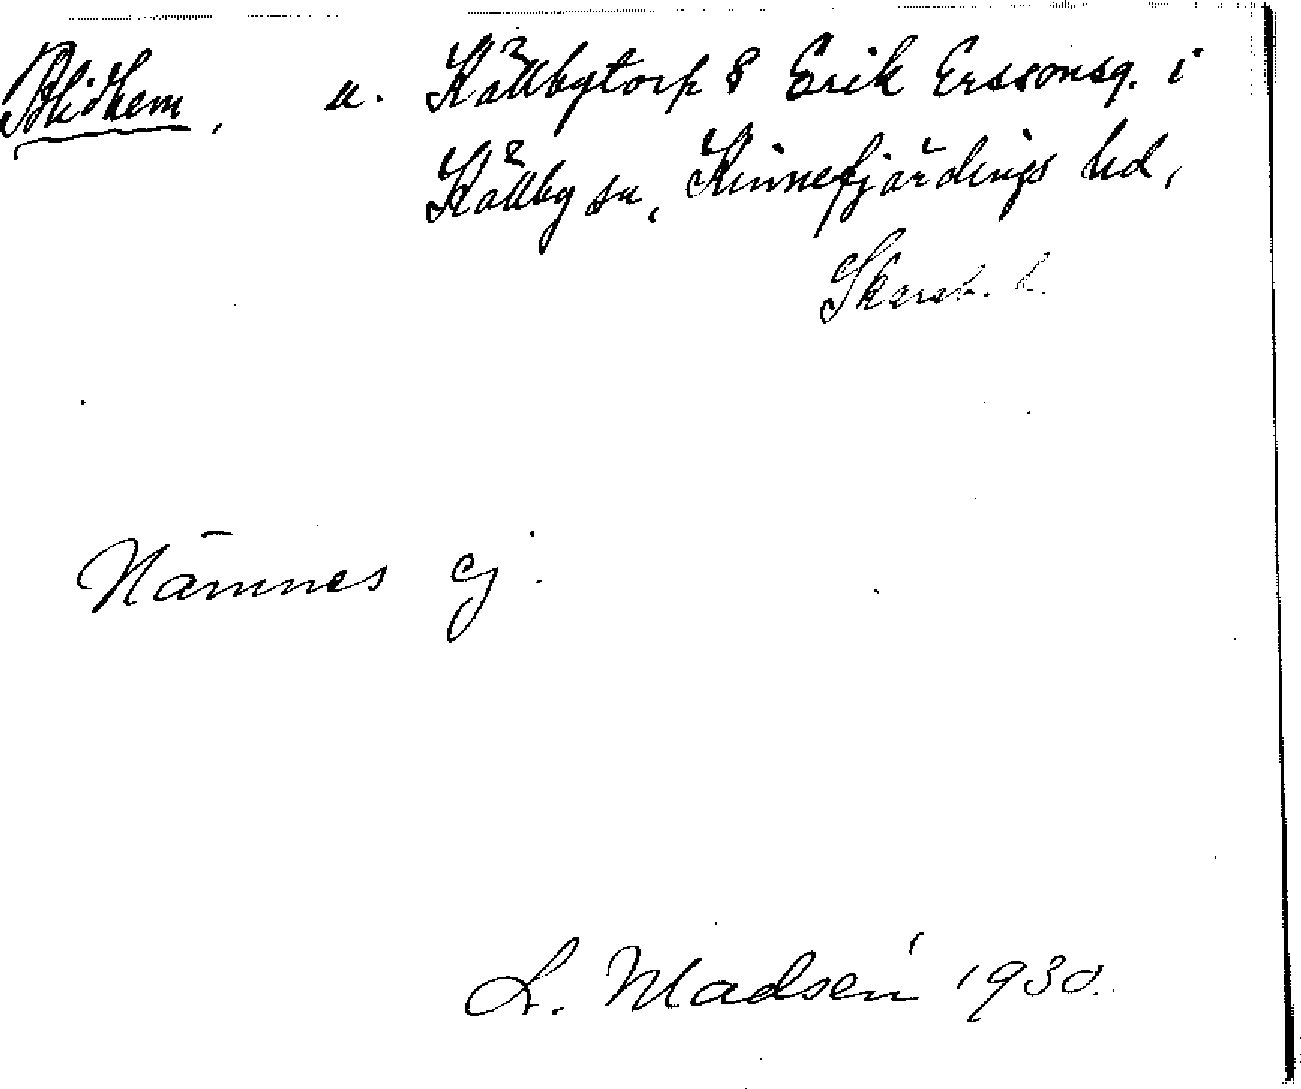 Blidhem, u. Källbytorp 8 Erik Erssonsg. i
Källby sn, Kinnefjärdings hd,
Skarab. l.
Nämnes ej.
L. Madsén 1930.